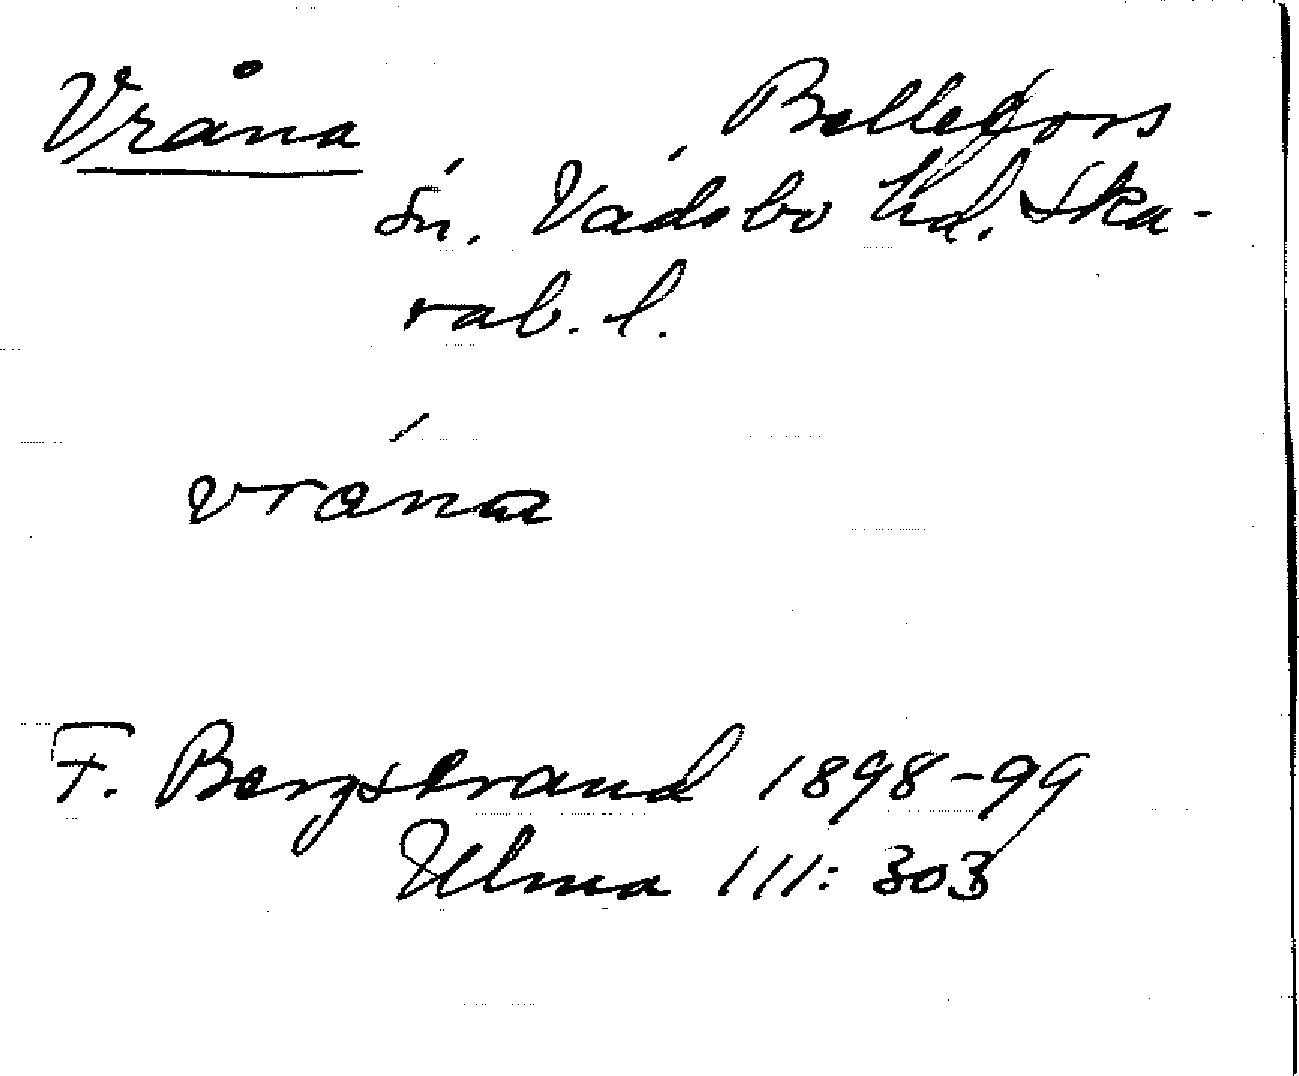 Vråna Bellefors
sn. Vadsbo hd. Ska-
rab. l.
vråna
F. Bergstrand 1898-99
Ulma 111: 303